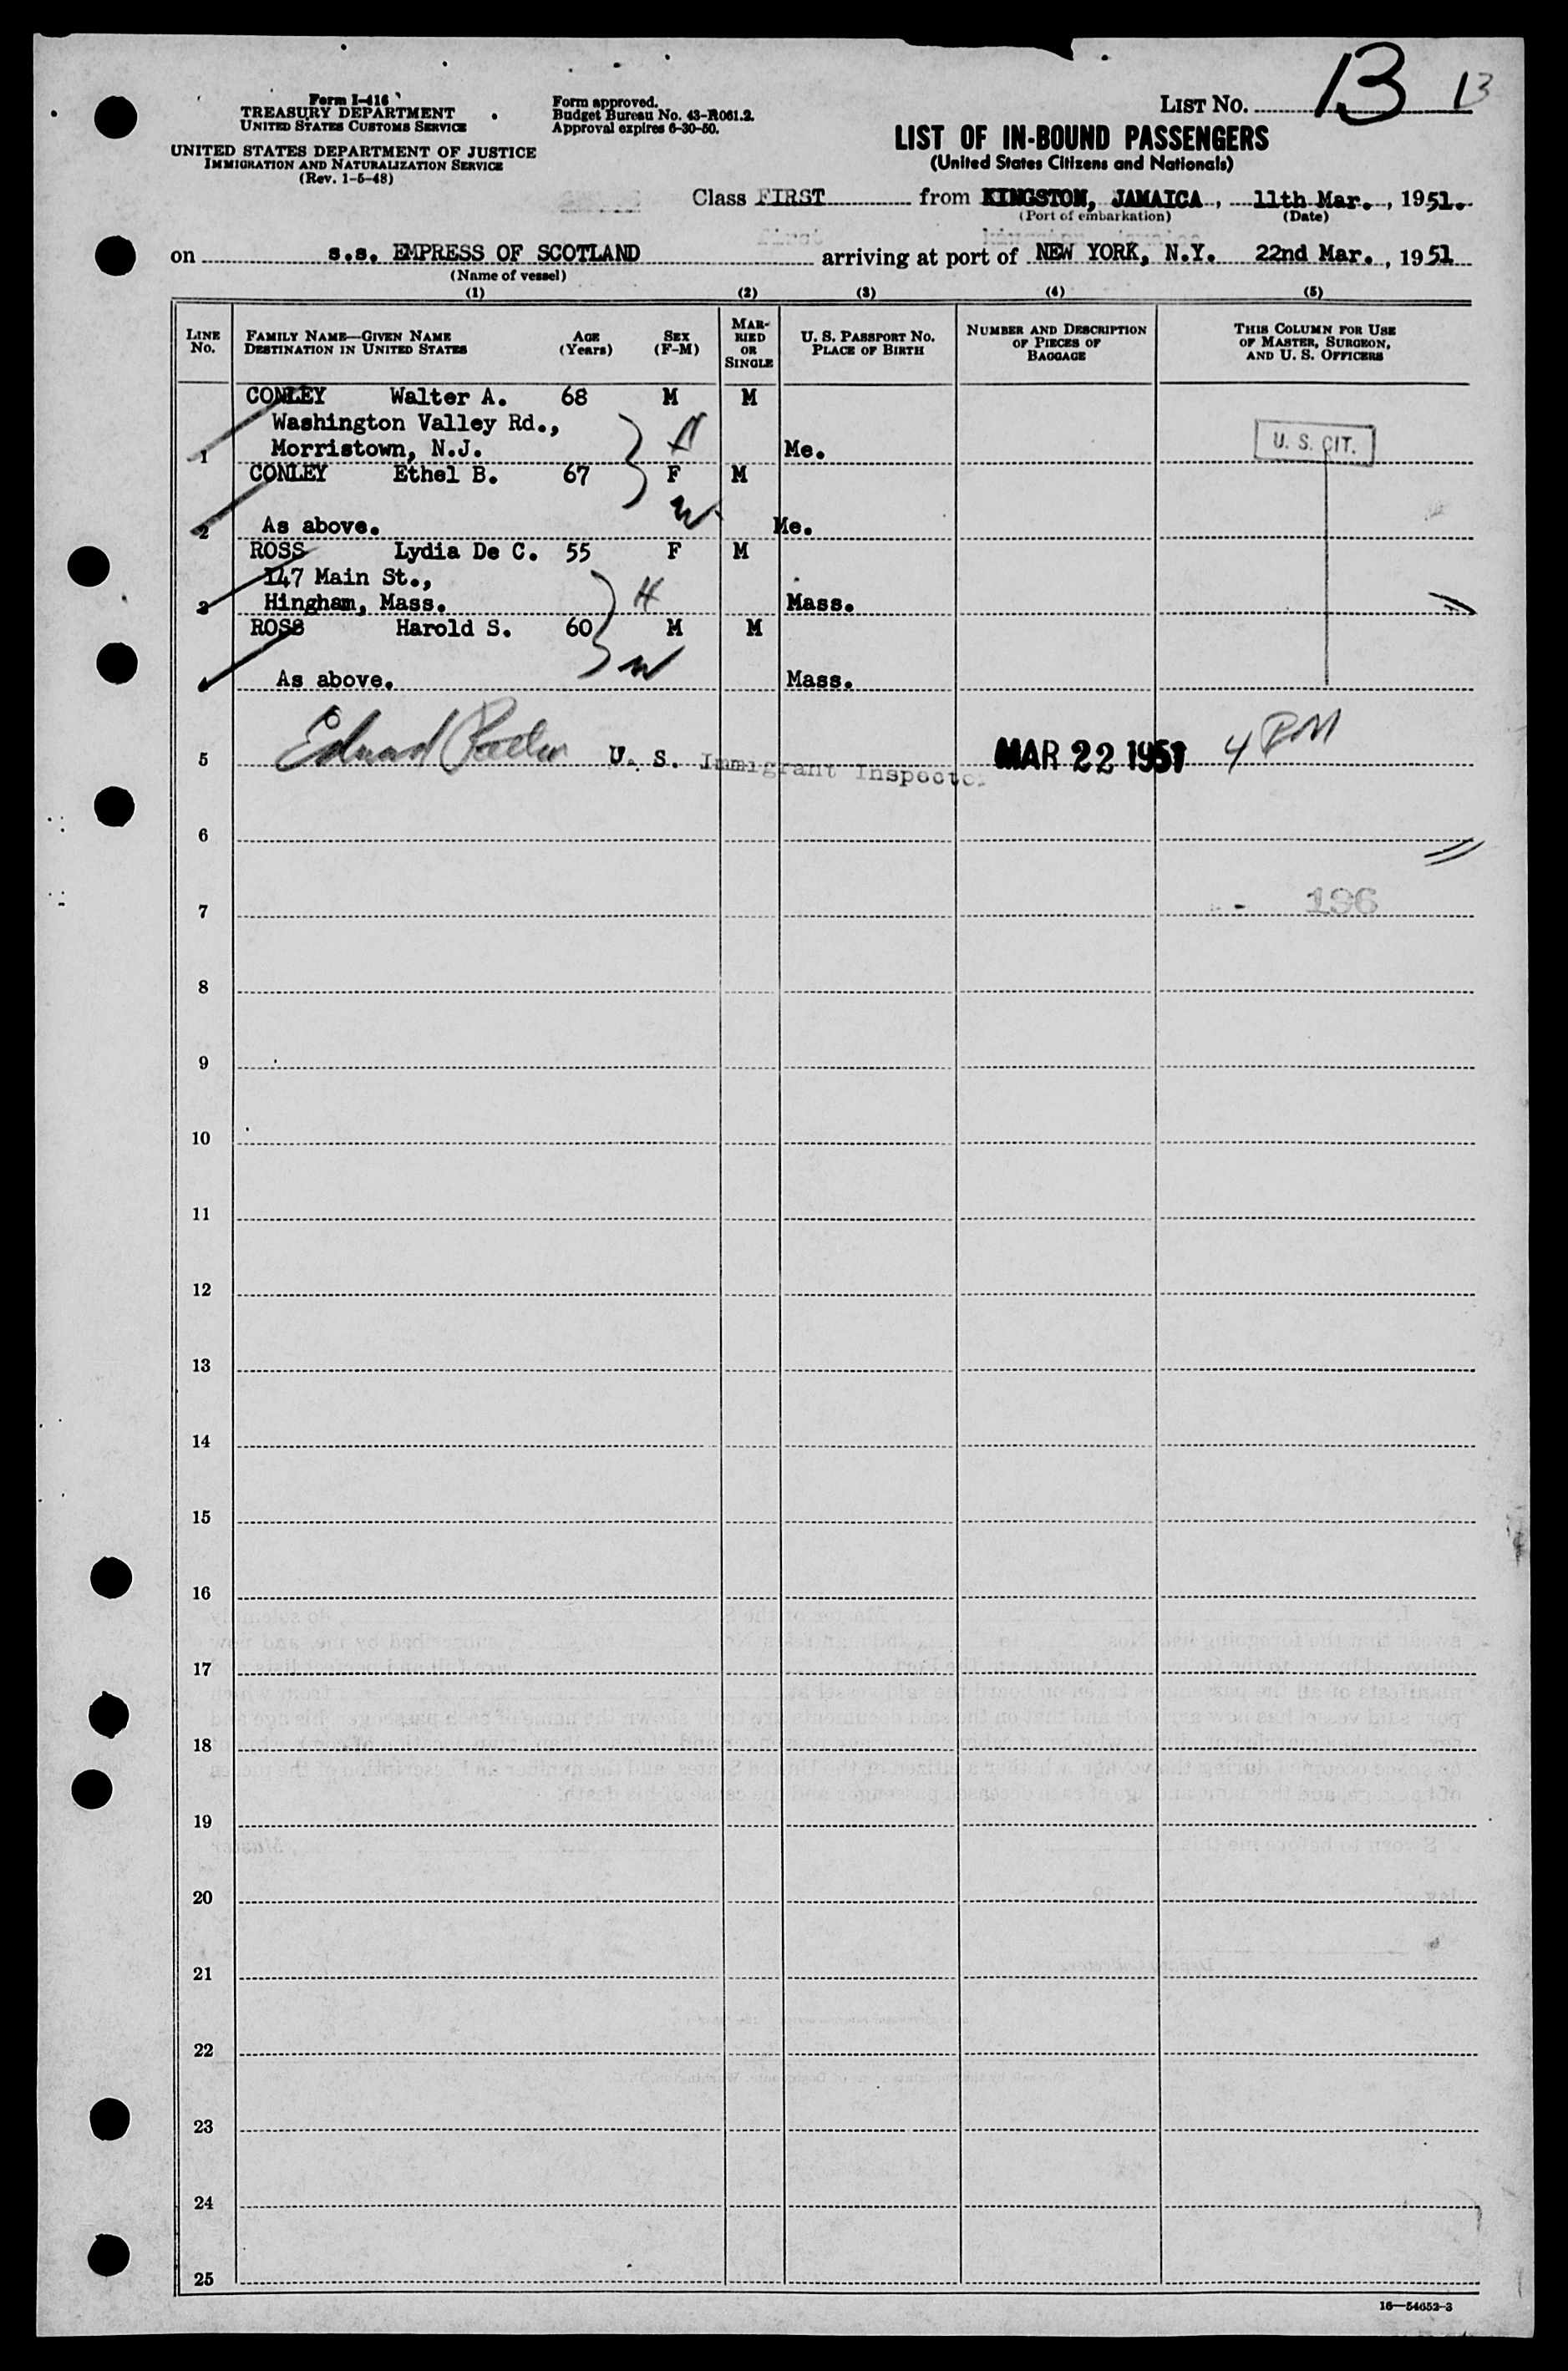 LIST NO. 13 13
Form I-416
TREASURY DEPARTMENT
UNITED STATES CUSTOMS SERVICE
UNITED STATES DEPARTMENT OF JUSTICE
IMMIGRATION AND NATURALIZATION SERVICE
(Rev. 1-5-48)
Form approved.
Budget Bureau No. 43-R061.2.
Approval expires 6-30-50.
LIST OF IN-BOUND PASSENGERS
(United States Citizens and Nationals)
Class FIRST from KINGSTON, JAMAICA, 11th Mar., 1951.
(Port of embarkation) (Date)
on s.s. EMPRESS OF SCOTLAND arriving at port of NEW YORK, N.Y. 22nd Mar., 1951
(Name of vessel)
(1) (2) (3) (4) (5)
LINE No. FAMILY NAME—GIVEN NAME DESTINATION IN UNITED STATES AGE (Years) SEX (F-M) MARRIED OR SINGLE U. S. PASSPORT NO. PLACE OF BIRTH NUMBER AND DESCRIPTION OF PIECES OF BAGGAGE THIS COLUMN FOR USE OF MASTER, SURGEON, AND U. S. OFFICERS
CONLEY Walter A. 68 M M
Washington Valley Rd.,
1 Morristown, N.J. H Me. U. S. CIT.
CONLEY Ethel B. 67 F M
2 As above. W Me.
ROSS Lydia De C. 55 F M
147 Main St.,
3 Hingham, Mass. H Mass.
ROSS Harold S. 60 M M
As above. W Mass.
5 Edward U. S. Immigrant Inspector MAR 22 1951 4 PM
6
7 - 196
8
9
10
11
12
13
14
15
16
17
18
19
20
21
22
23
24
25
16—54652-3